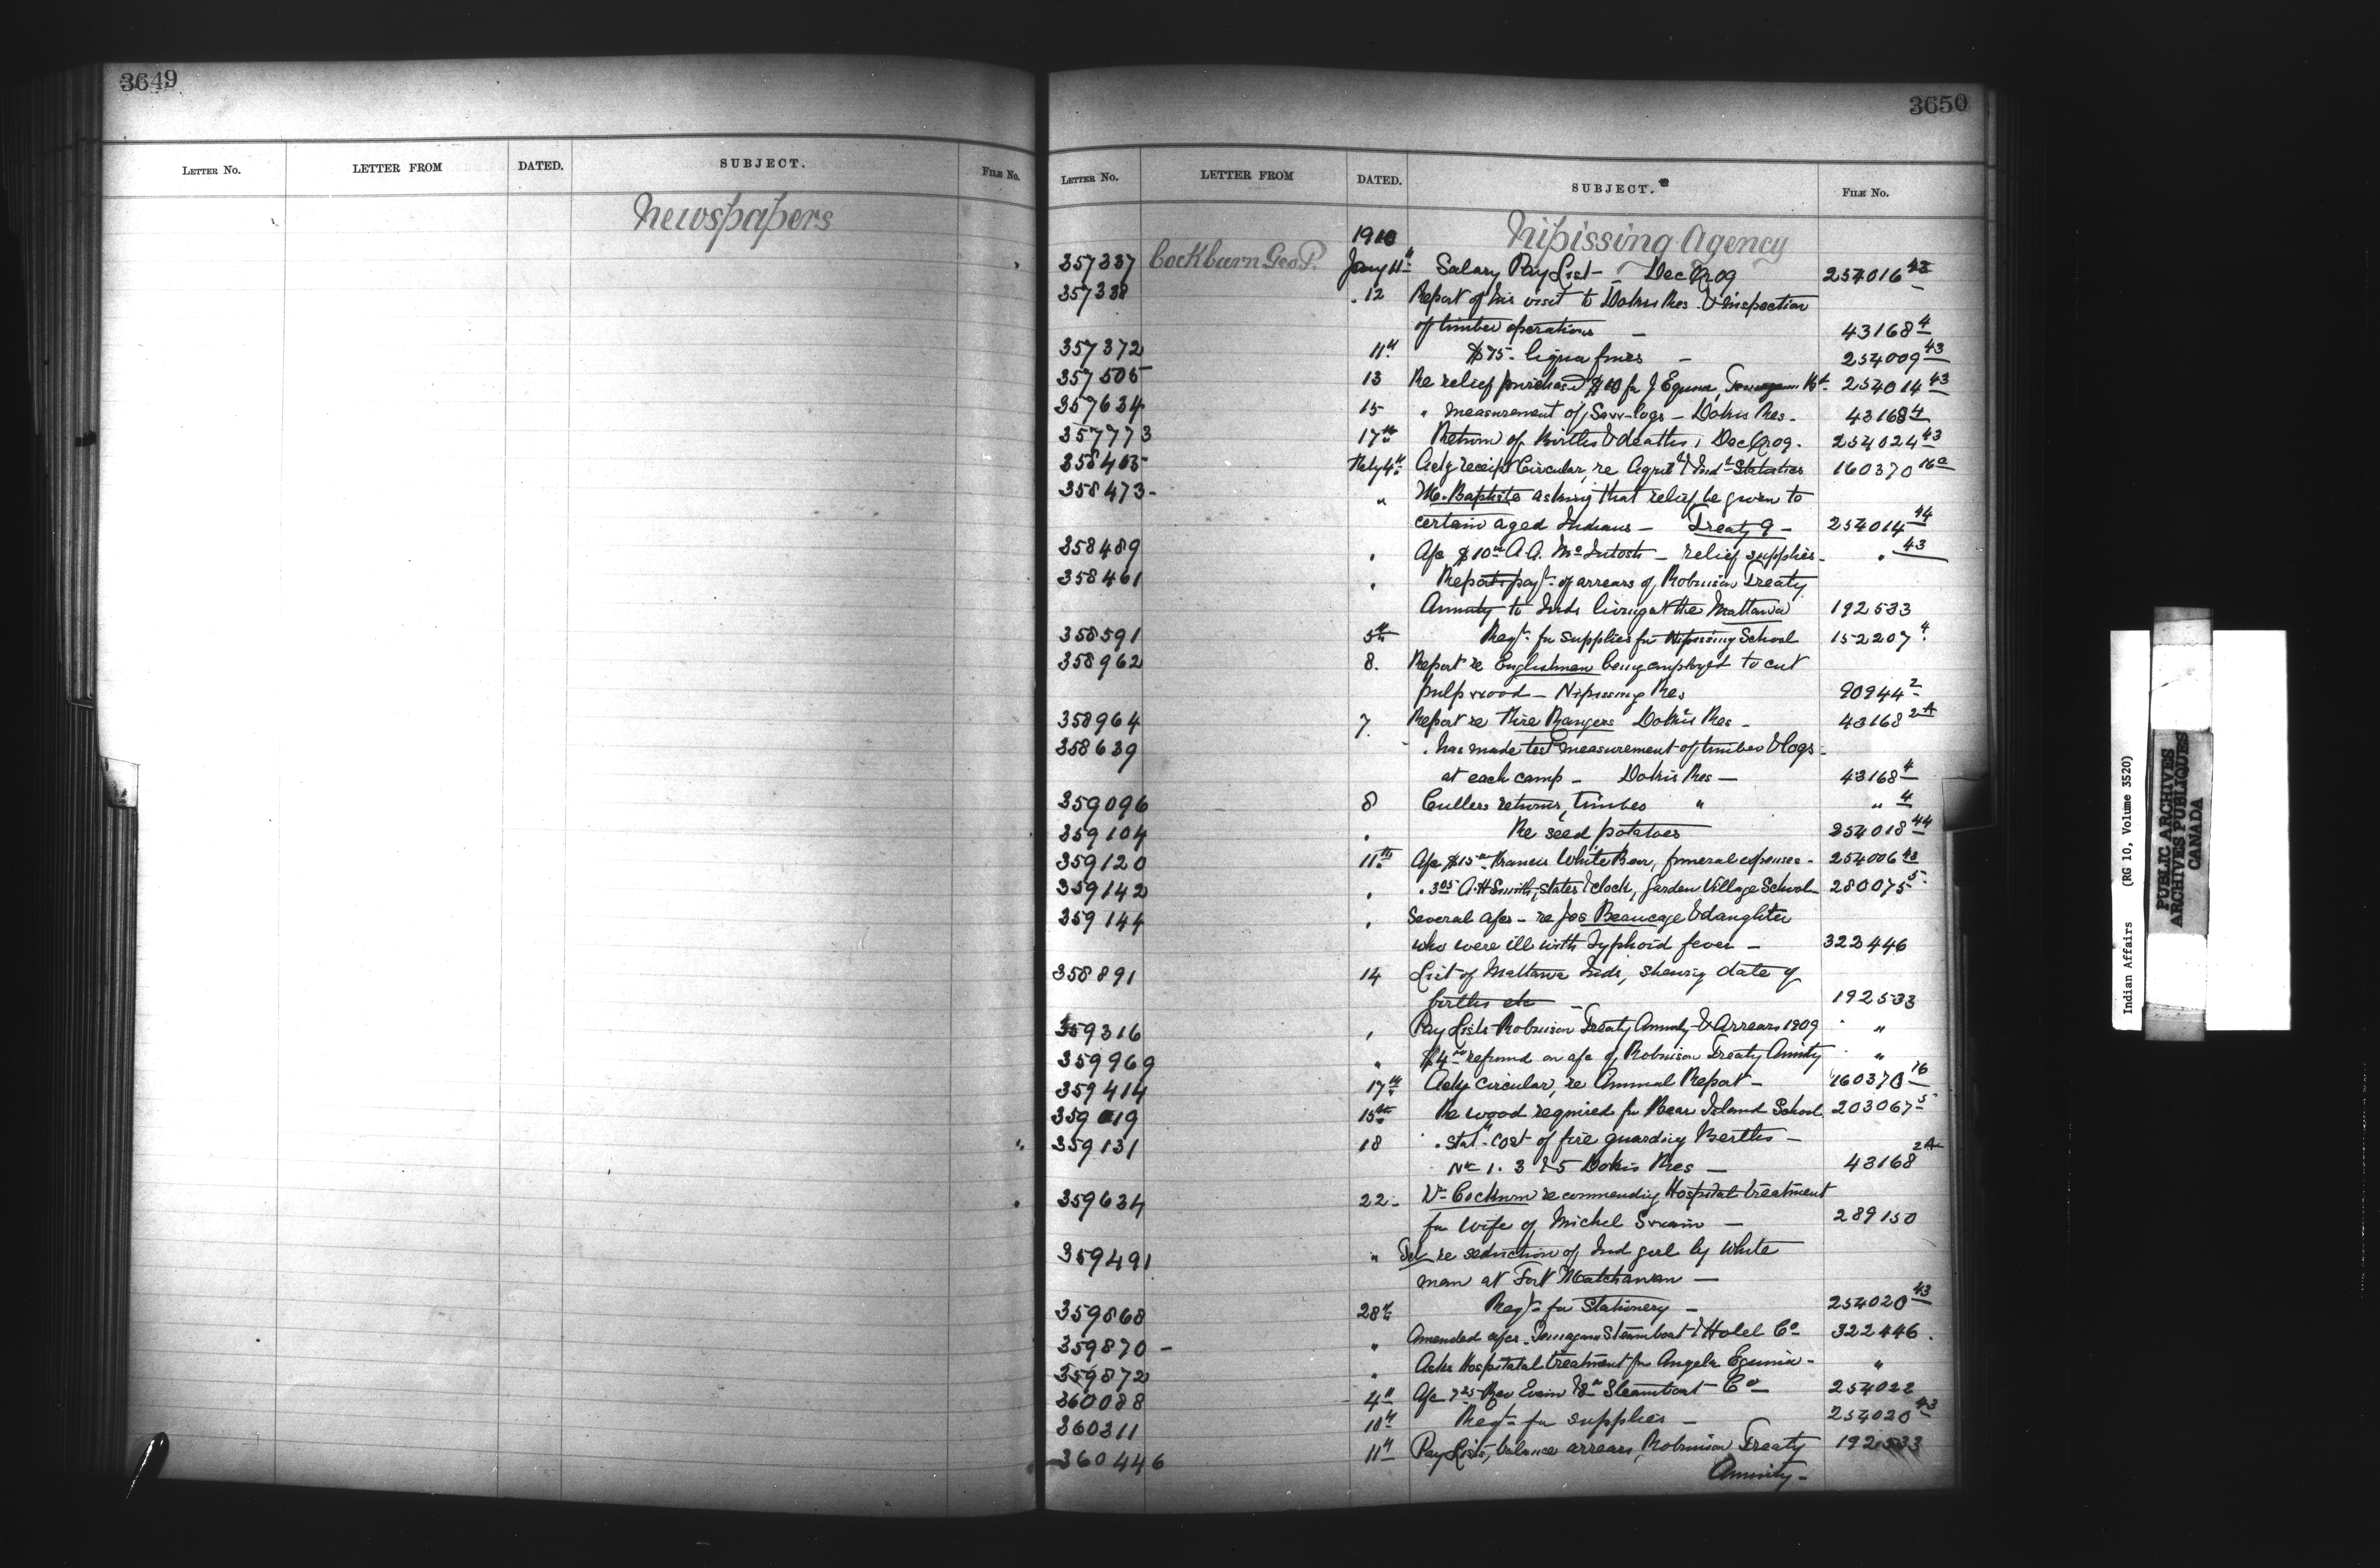 3649
LETTER NO. LETTER FROM DATED. SUBJECT. FILE NO.
Newspapers
3650
LETTER NO. LETTER FROM DATED. SUBJECT. FILE NO.
1910 Nipissing Agency
357337 Cockburn Geo P. Jany 11th Salary Pay List - Dec Qr 09 254016 43
357338 . 12 Report of his visit to Dokis Res. & inspection
of timber operations - 43168 4
357372 11th $75. liquor fines - 254009 43
357505 13 Re relief purchased $10 for J Eguna, 254014 43
357634 15 " measurement of Saw-logs - Dokis Res. 43168 4
357773 17th Return of Births & deaths, Dec Qr 09. 254024 43
358405 Feby 4th Ackg receipt Circular, re Agricl & Indl Statistics 160370 16a
358473 - " M. Baptiste asking that relief be given to
certain aged Indians - Treaty 9 - 254014 44
358489 " A/c $10 00 A.A. McIntosh - relief supplies - " 43
358461 " Reports payt of arrears of Robinson Treaty
Annuity to Inds living at the Mattawa 192533
358591 5th Reqt for supplies for Nipissing School 152207 4
358962 8. Report re Englishmen being employed to cut
pulp wood - Nipissing Res 90944 2
358964 7. Report re Fire Rangers Dokis Res - 43168 2A
358639 . has made test measurement of timber & logs -
at each camp - Dokis Res - 43168 4
359096 8 Cullers returns, timber " " 4
359104 . Re seed potatoes 254018 44
359120 11th A/c $15 00 Francis White Bear, funeral expenses - 254006 43
359142 . . 3 05 A.H Smith, slates & clock, Garden Village School 280075 5
359144 . Several a/cs - re Jos Beaucage & daughter
who were ill with typhoid fever - 322446
358891 14 List of Mattawa Inds, shewing date of
births etc - 192533
359316 . Pay Lists Robinson Treaty Annuity & Arrears 1909 "
359969 . $4 00 refund on a/c of Robinson Treaty Annty "
359414 17th Ackg circular, re Annual Report - 160370 16
359019 15th Re wood required for Bear Island School 203067 5
359131 18 . Stat. cost of fire guarding Berths -
No 1. 3 & 5 Dokis Res - 43168 2A
359634 22 - Dr Cockburn recommending Hospital treatment
for wife of Michel - 289150
359491 " Tel re seduction of Ind girl by White
man at Fort Matchawan -
359868 28th Reqt for Stationery - 254020 43
359870 - " Amended a/cs. Temagami Steamboat & Hotel Co 322446.
359872 . Acks Hospital treatment for Angela Egunia - "
360088 4th A/c 7 25 Steamboat Co - 254022
360311 10th Reqt for supplies - 254020 43
360446 11th Pay Lists, balance arrears, Robinson Treaty 192533
Annuity -
Indian Affairs (RG 10, Volume 3520)
PUBLIC ARCHIVES
ARCHIVES PUBLIQUES
CANADA